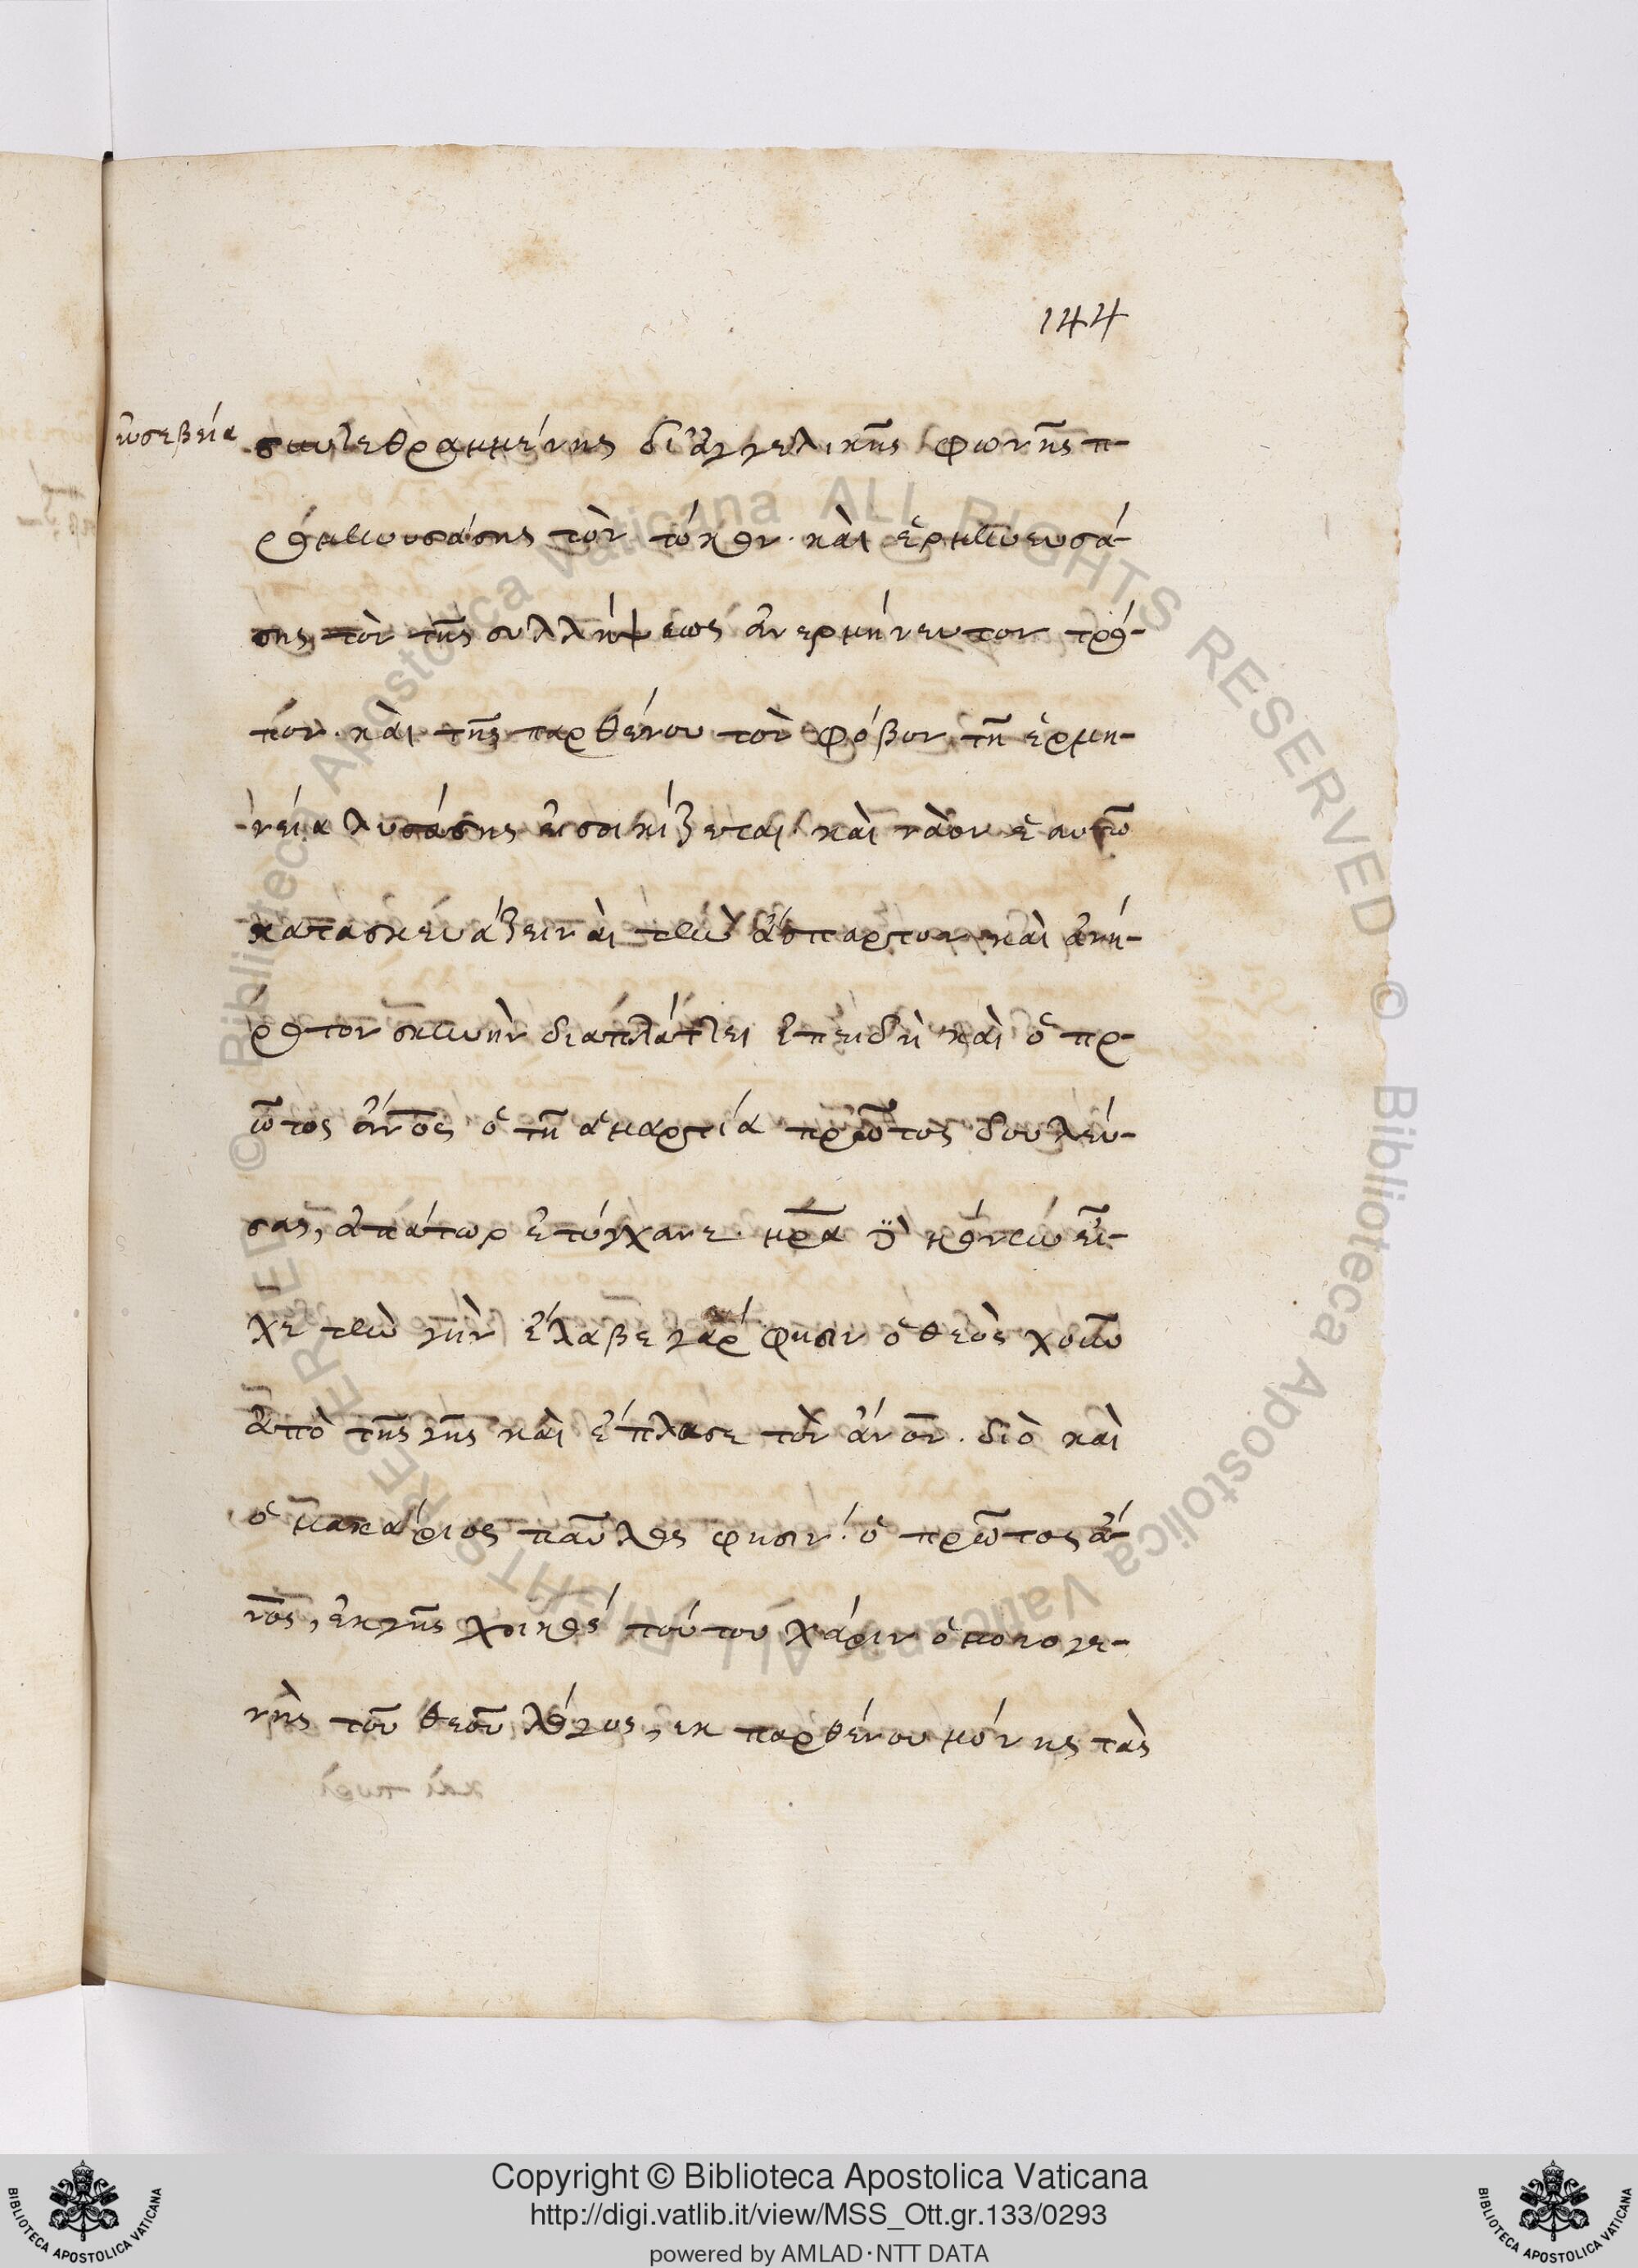 144
εὐσεβεία συντεθραμμένης δι' ἀγγελικῆς φωνῆς π-
ρομηνυσάσης τὸν τόκον· καὶ ἑρμηνευσά-
σης τὸν τῆς συλλήψεως ἀνερμήνευτον τρό-
πον· καὶ τῆς παρθένου τὸν φόβον τῆ ἑρμη-
νεία λυσάσης εἰσοικίζεται· καὶ νἀὸν ἑαυτῶ
κατασκευάζειν καὶ τὴν ἄσπαρτον καὶ ἀνή-
ροτον σκηνὴν διαπλάττει ἐπειδὴ καὶ ὁ πρ-
ῶτος ἄνος ὁ τῆ ἁμαρτία πρῶτος δουλεύ-
σας, ἀπάτωρ ἐτύγχανε· μρα δὲ μόνην εἶ-
χε τὴν γὴν ἔλαβε γὰρ φησιν ὁ θεὸς χοῦν
ἀπὸ τῆς γῆς καὶ ἔπλασε τὸν ἄνον. διὸ καὶ
ὁ μακάριος παῦλος φησιν· ὁ πρῶτος ἄ-
νος, ἐκ γῆς χοικός τούτου χάριν ὁ μονογε-
νὴς τοῦ θεοῦ λόγος, ἐκ παρθένου μόνης τὰς
Copyright © Biblioteca Apostolica Vaticana
http://digi.vatlib.it/view/MSS_Ott.gr.133/0293
powered by AMLAD·NTT DATA
BIBLIOTECA APOSTOLICA VATICANA
BIBLIOTECA APOSTOLICA VATICANA
© Biblioteca Apostolica Vaticana ALL RIGHTS RESERVED
© Biblioteca Apostolica Vaticana ALL RIGHTS RESERVED